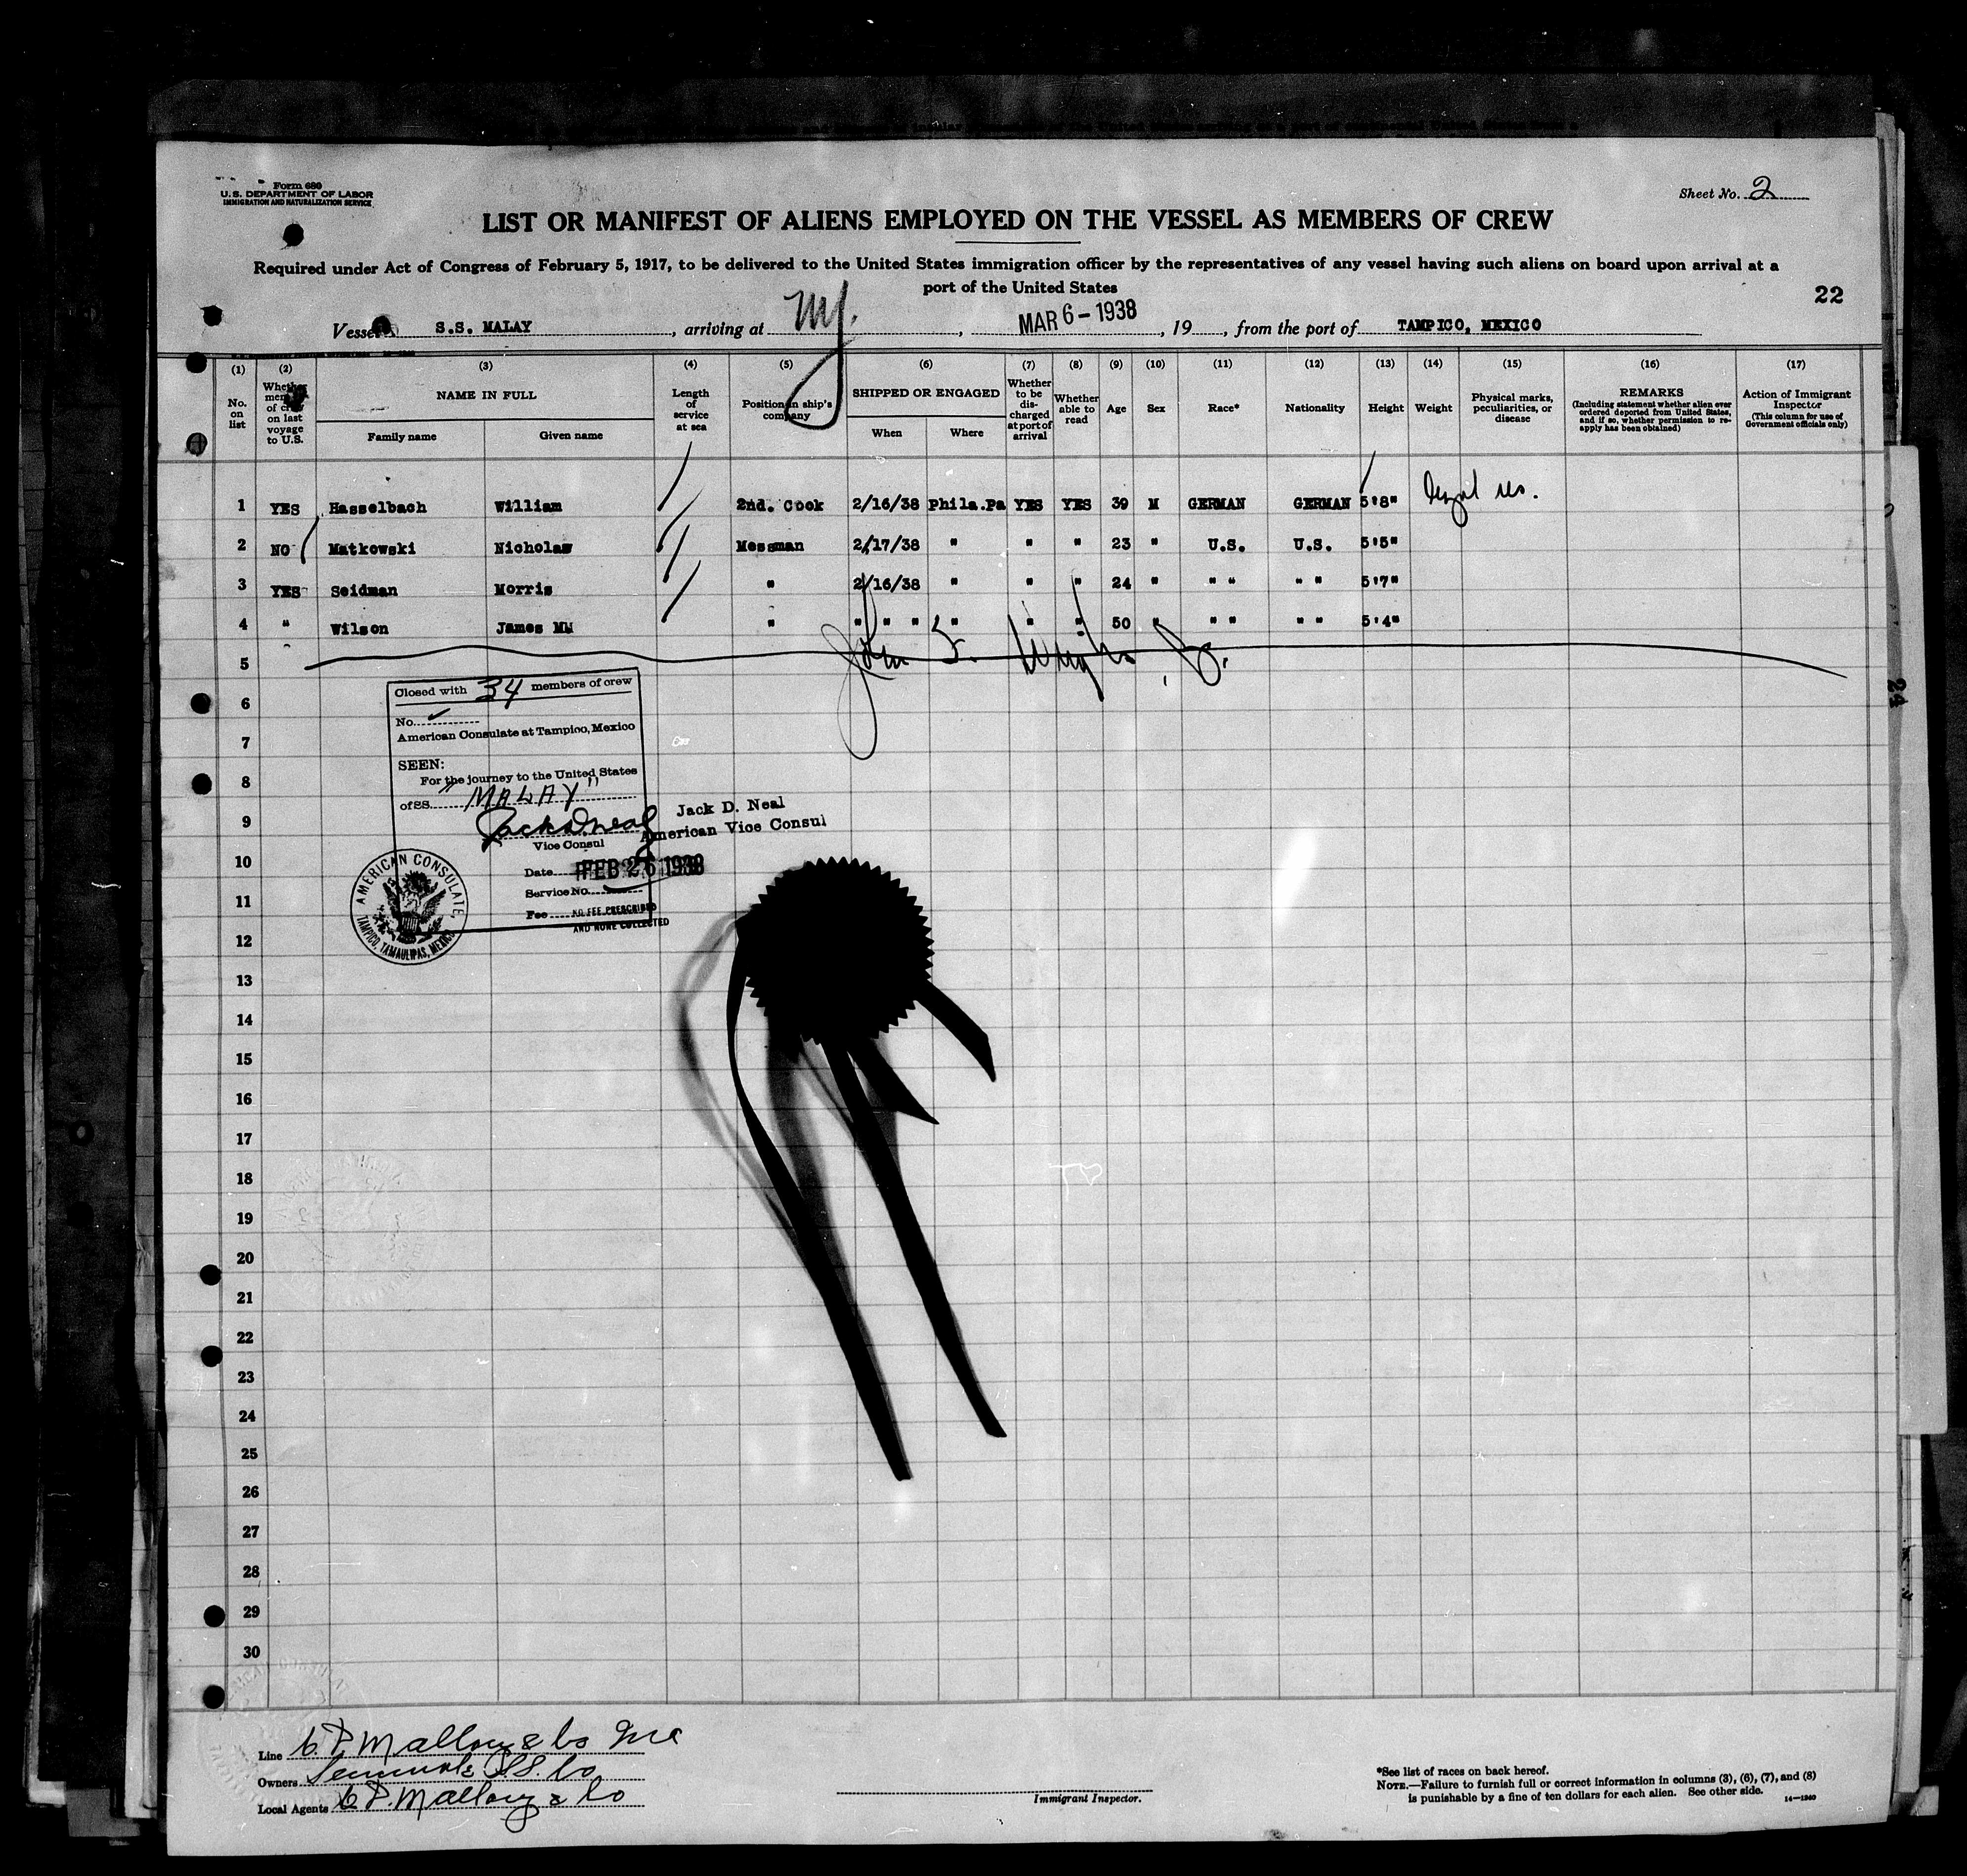 Form 680
U.S. DEPARTMENT OF LABOR
IMMIGRATION AND NATURALIZATION SERVICE
Sheet No. 2
LIST OR MANIFEST OF ALIENS EMPLOYED ON THE VESSEL AS MEMBERS OF CREW
Required under Act of Congress of February 5, 1917, to be delivered to the United States immigration officer by the representatives of any vessel having such aliens on board upon arrival at a
port of the United States
22
Vessel S.S. MALAY, arriving at NY., MAR 6-1938, 19, from the port of TAMPICO, MEXICO
(1) (2) (3) (4) (5) (6) (7) (8) (9) (10) (11) (12) (13) (14) (15) (16) (17)
No. on list
Whether member of crew on last voyage to U.S.
NAME IN FULL
Family name
Given name
Length of service at sea
Position in ship's company
SHIPPED OR ENGAGED
When
Where
Whether to be discharged at port of arrival
Whether able to read
Age
Sex
Race*
Nationality
Height
Weight
Physical marks, peculiarities, or disease
REMARKS
(Including statement whether alien ever ordered deported from United States, and if so, whether permission to reapply has been obtained)
Action of Immigrant Inspector
(This column for use of Government officials only)
1 YES Hasselbach William 2nd. Cook 2/16/38 Phila.Pa YES YES 39 M GERMAN GERMAN 5'8" legal res.
2 NO Matkowski Nicholas Messman 2/17/38 " " " 23 " U.S. U.S. 5'5"
3 YES Seidman Morris " 2/16/38 " " " 24 " " " " " 5'7"
4 " Wilson James " " " " " " " 50 " " " " " 5'4"
5
John F. Wright, Jr.
6
7
8
9
10
11
12
13
14
15
16
17
18
19
20
21
22
23
24
25
26
27
28
29
30
Closed with 34 members of crew
No.
American Consulate at Tampico, Mexico
SEEN:
For the journey to the United States
of SS. "MALAY"
Jack D. Neal
Vice Consul
Jack D. Neal
American Vice Consul
Date FEB 26 1938
Service No.
Fee NO FEE PRESCRIBED
AND NONE COLLECTED
AMERICAN CONSULATE,
TAMPICO, TAMAULIPAS, MEXICO
24
Line C. D. Mallory & Co Inc
Owners Seminole S.S. Co
Local Agents C. D. Mallory & Co
Immigrant Inspector.
*See list of races on back hereof.
NOTE.—Failure to furnish full or correct information in columns (3), (6), (7), and (8)
is punishable by a fine of ten dollars for each alien. See other side.
14—1240